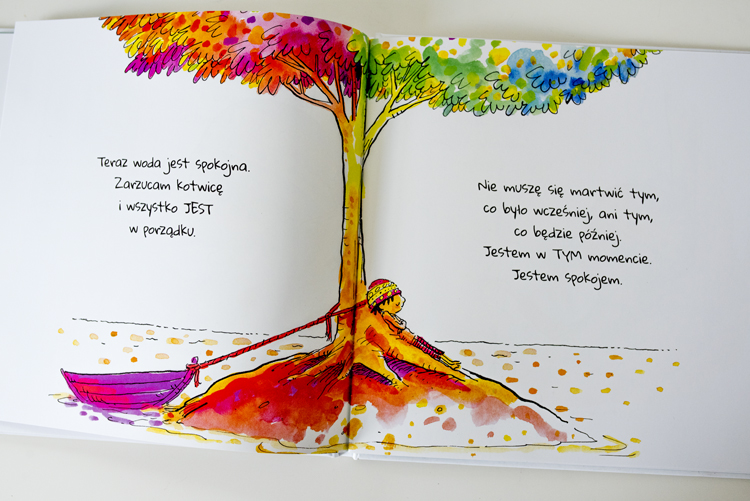 Teraz woda jest spokojna.
Zarzucam kotwicę
i wszystko JEST
w porządku.
Nie muszę się martwić tym,
co było wcześniej, ani tym,
co będzie później.
Jestem w TYM momencie.
Jestem spokojem.